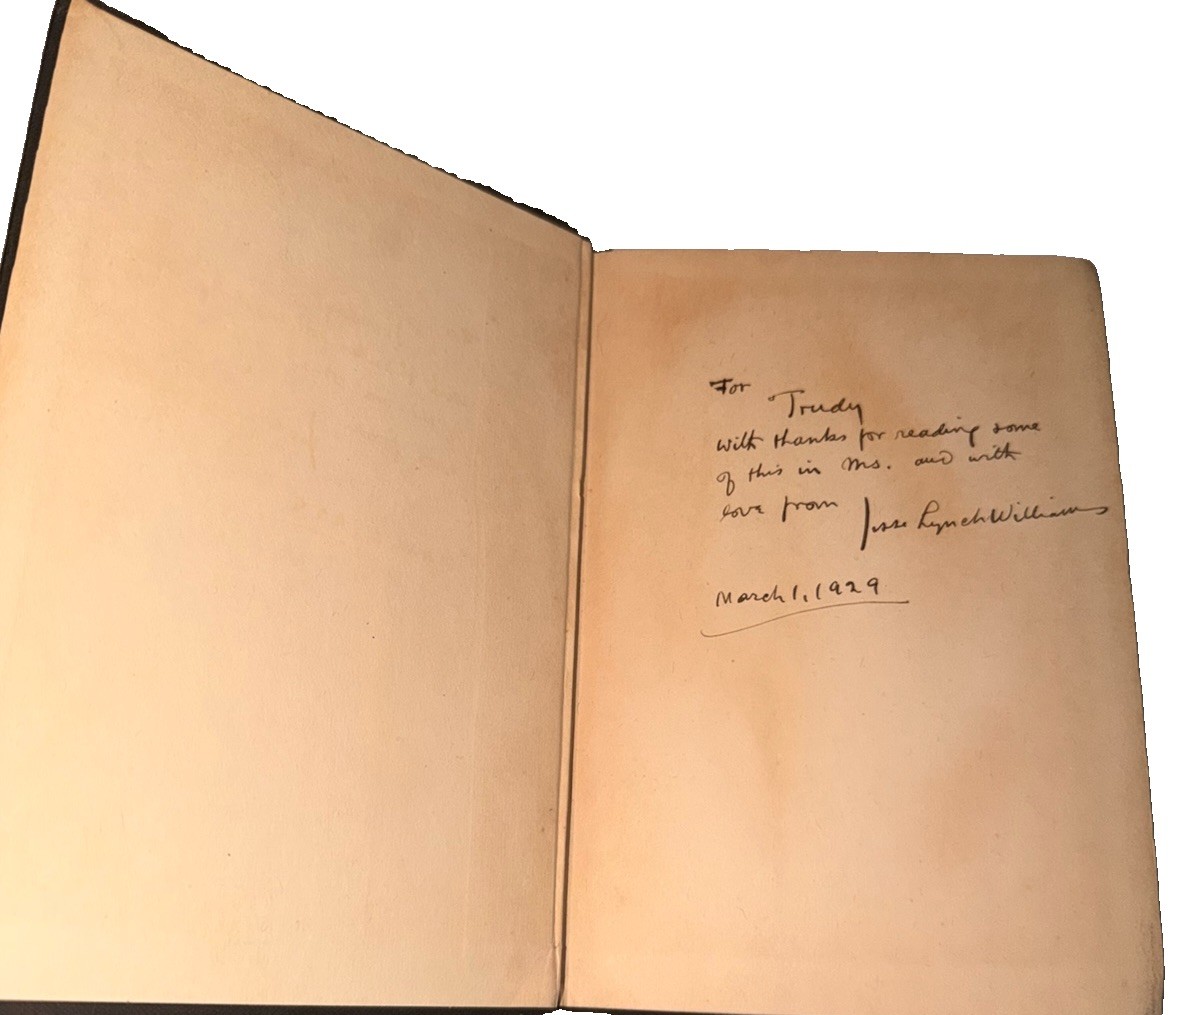 For
Trudy
with thanks for reading some
of this in Ms. and with
love from Jesse Lynch Williams
March 1, 1929